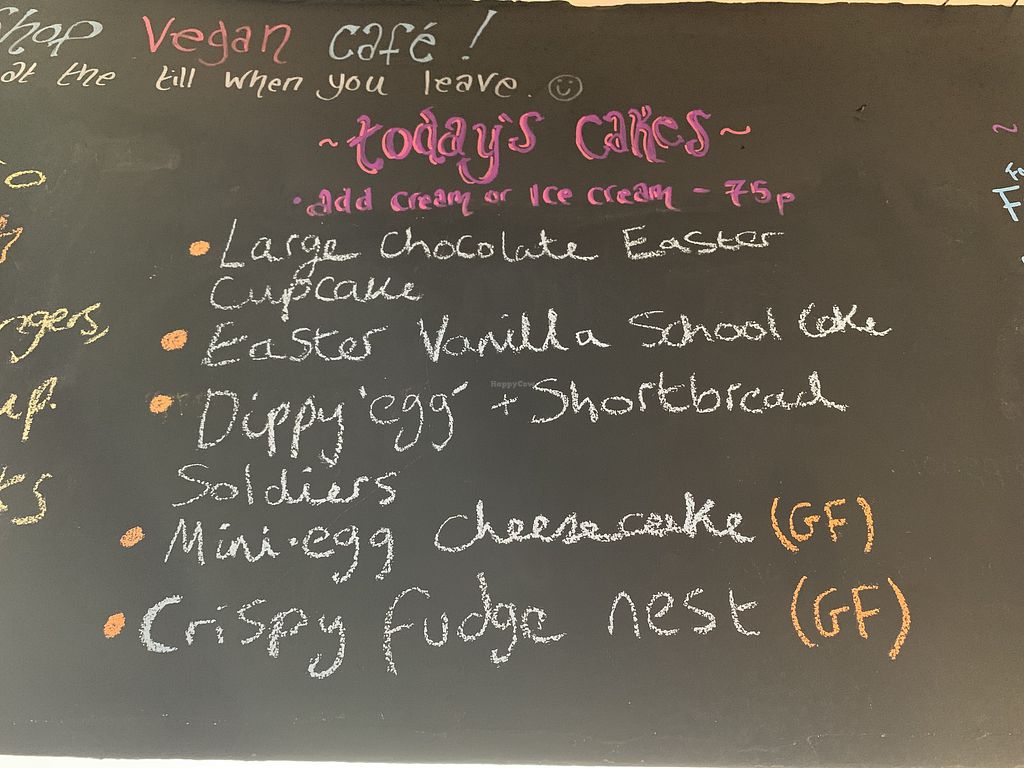 Shop Vegan café!
at the till when you leave.
~today's cakes~
• add cream or Ice cream - 75p
• Large Chocolate Easter
Cupcake
• Easter Vanilla School Cake
• Dippy 'egg' + Shortbread
Soldiers
• Mini-egg cheesecake (GF)
• Crispy fudge nest (GF)
HappyCow